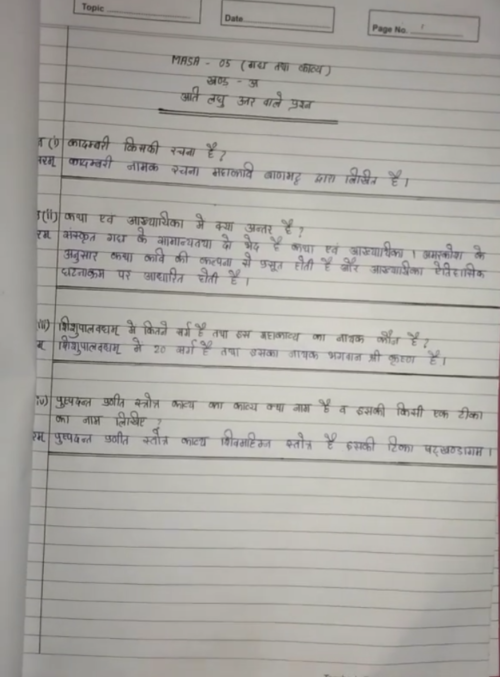 Topic
Date
Page No.
MASA - 05 (गद्य तथा काव्य)
खण्ड - अ
अति लघु उत्तर वाले प्रश्न
(i) कादम्बरी किसकी रचना है ?
कादम्बरी नामक रचना महाकवि बाणभट्ट द्वारा लिखित है ।
(ii) कथा एवं आख्यायिका में क्या अन्तर है ?
संस्कृत गद्य के सामान्यतया दो भेद है कथा एवं आख्यायिका । अमरकोश के
अनुसार कथा कवि की कल्पना से प्रसूत होती है और आख्यायिका ऐतिहासिक
घटनाक्रम पर आधारित होती है ।
(iii) शिशुपालवधम् में कितने सर्ग है तथा इस महाकाव्य का नायक कौन है ?
शिशुपालवधम् में 20 सर्ग है तथा इसका नायक भगवान श्री कृष्ण है ।
iv) पुष्पदन्त प्रणीत स्त्रोत काव्य का काव्य क्या नाम है व इसकी किसी एक टीका
का नाम लिखिए ?
पुष्पदन्त प्रणीत स्तोत्र काव्य शिवमहिम्न स्तोत्र है इसकी टिका षट्खण्डागम ।